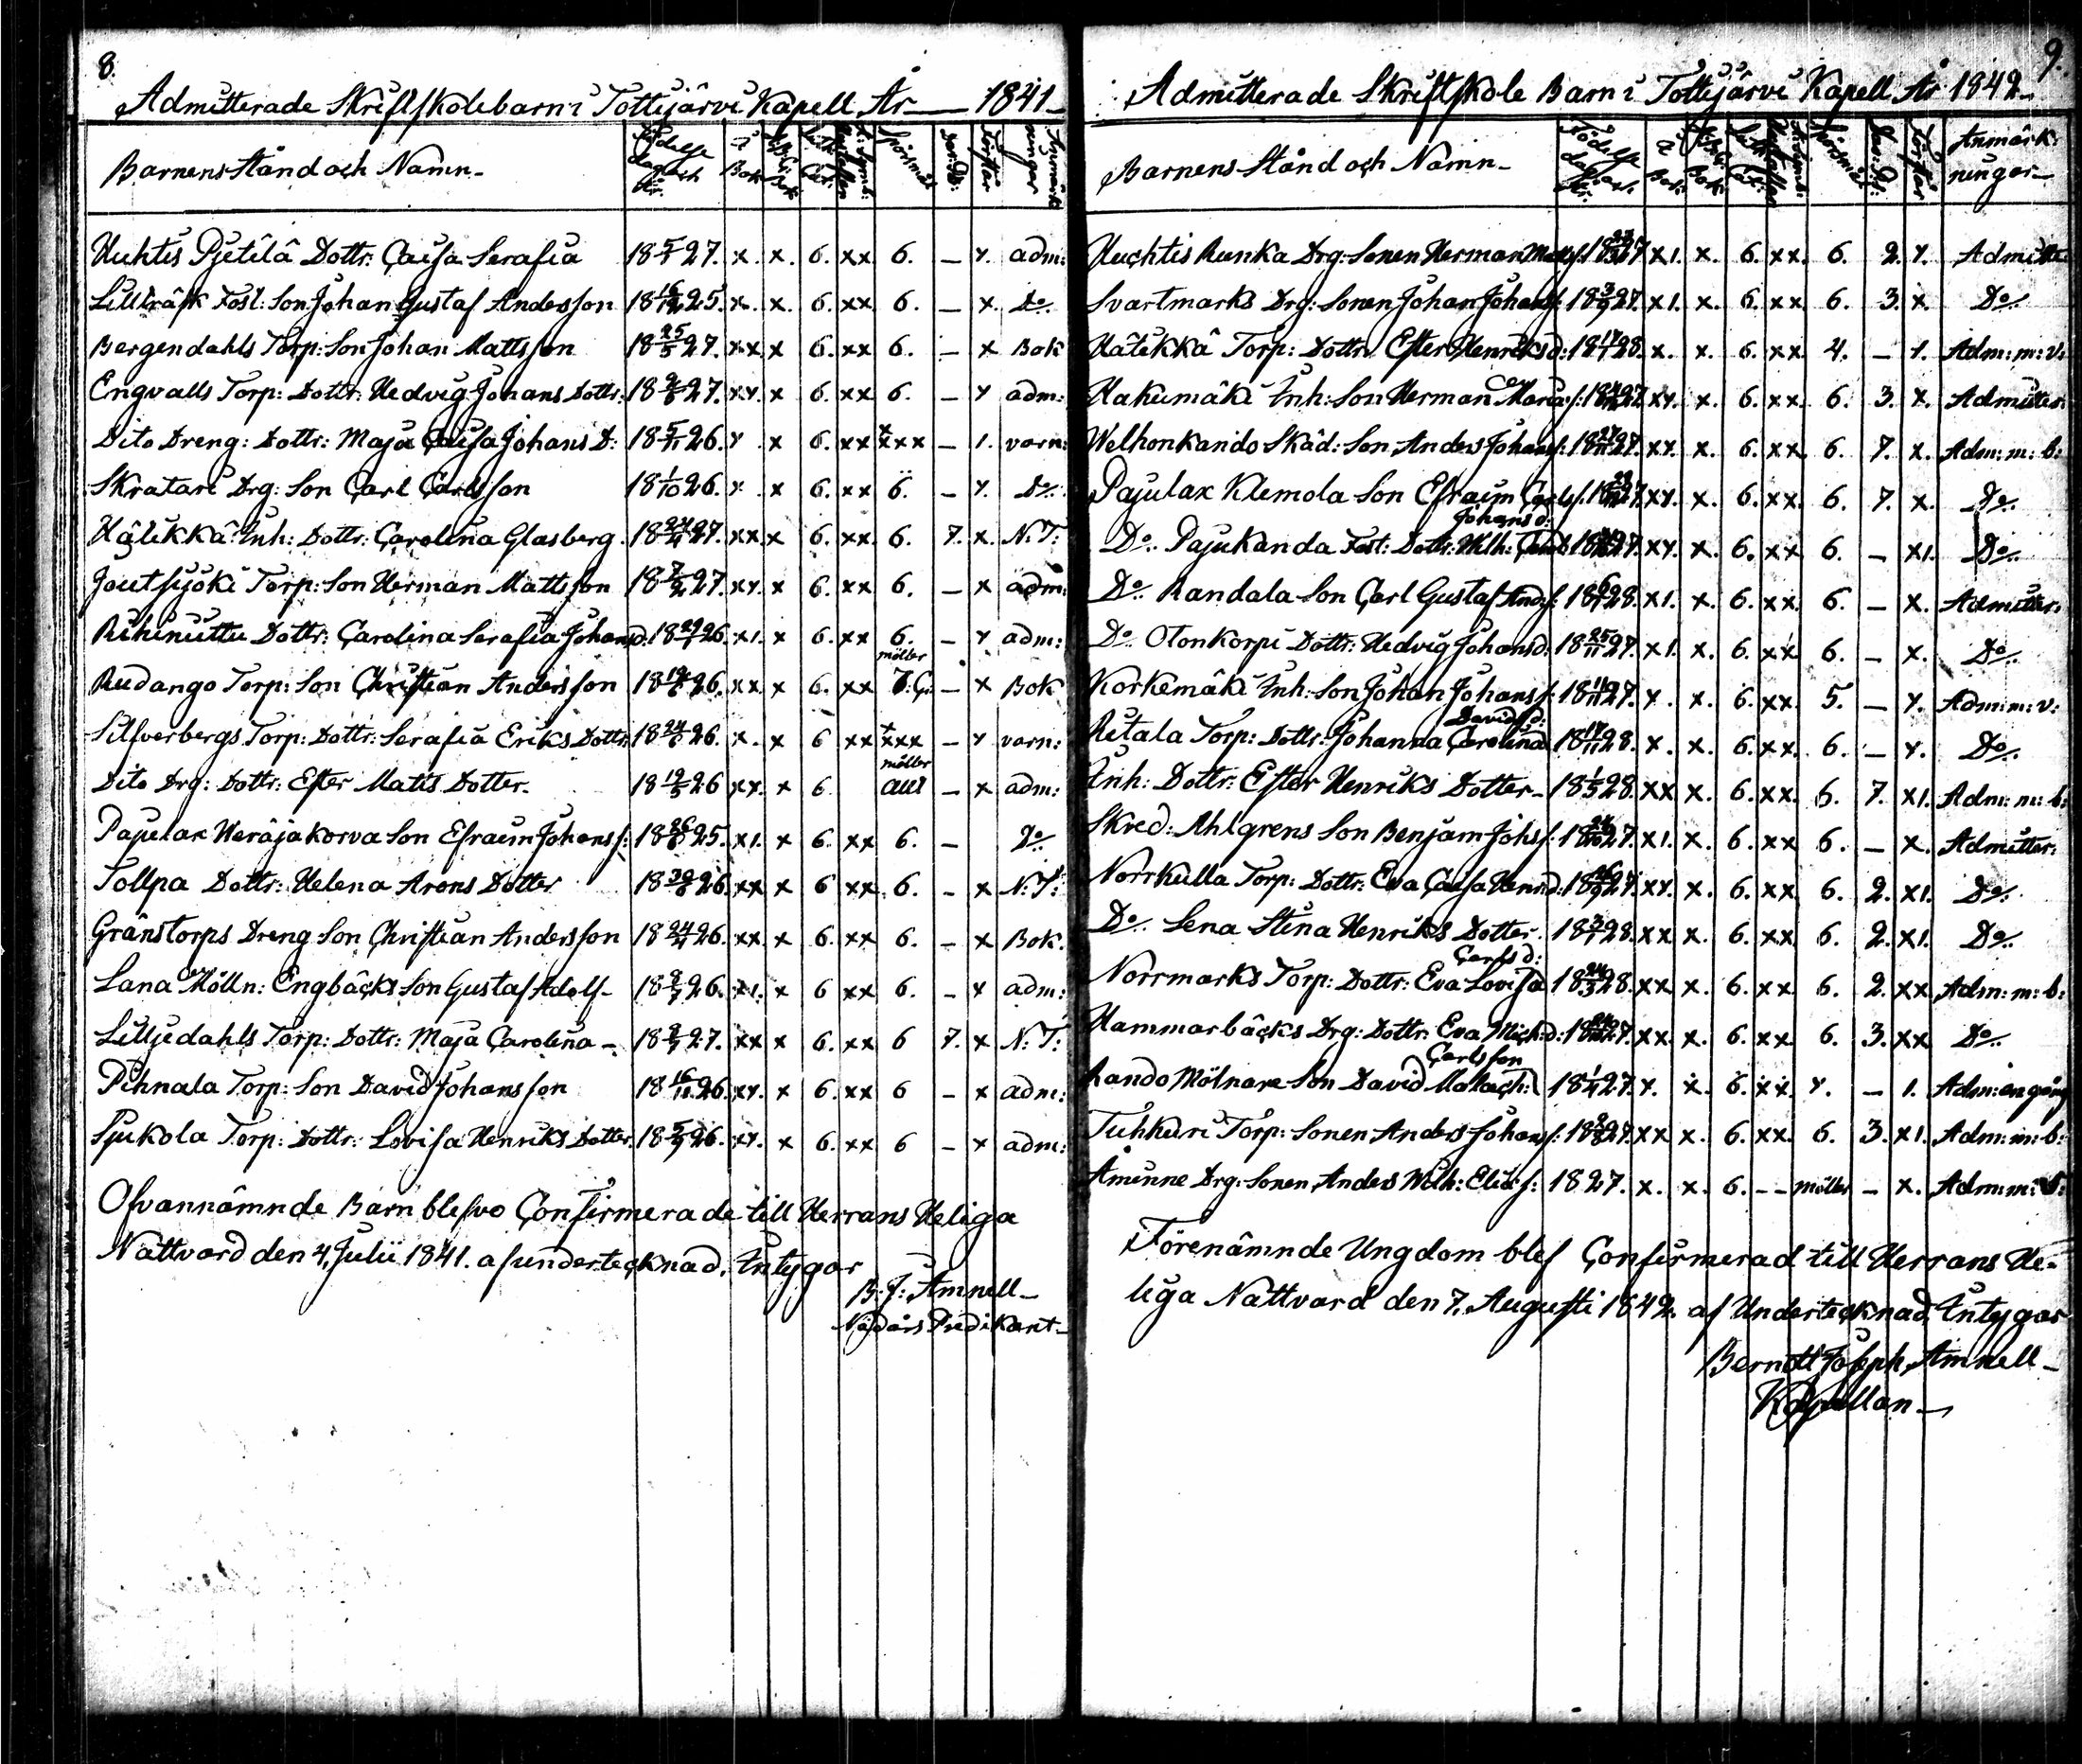 8.
Admitterade Skriftskolebarn i Tottijärvi Kapell År 1841
Barnens Stånd och Namn
Födelse dag och år. A Bok Spörsmål Anmärkningar
Huhtis Pjetilä Dottr: Caisa Serafia 18 5/5 27. x. x. 6. xx 6. – x. adm:
Lillträsk Fost: Son Johan Gustaf Andersson 18 16/12 25. x. x. 6. xx 6. – x. Do
Bergendahls Torp: Son Johan Mattsson 18 25/5 27. xx x 6. xx 6. – x Bok
Engvalls Torp: Dottr: Hedvig Johans Dottr: 27. xx. x 6. xx 6. – x adm:
Dito Dreng: Dottr: Maja Caisa Johans D: 18 5/11 26. x. x 6. xx xxxx – 1. varn:
Skratari Drg: Son Carl Carlsson 18 1/10 26. x. x 6. xx 6. – x. Do
Hälikkä Inh: Dottr: Carolina Glasberg 27. xx. x 6. xx. 6. 7. x. N: T:
Joutsijoki Torp: Son Herman Mattsson 18 7/2 27. xx. x 6. xx 6. – x adm:
Rihiniittu Dottr: Carolina Serafia Johansd. 26. x1. x 6. xx 6. – x adm:
Rudango Torp: Son Christian Andersson 26. xx. x 6. xx – x Bok
Silfverbergs Torp: Dottr: Serafia Eriks Dottr: 26. x. x 6 xx xxxx – x varn:
Dito Drg: Dottr: Ester Matts Dotter 18 19/5 26 xx. x 6. – x adm:
Pajulax Heräjäkorva Son Efraim Johanss: 25. x1. x 6. xx 6. – Do
Tollpa Dottr: Helena Arons Dotter 26 xx x 6 xx 6. – x N: T:
Gränstorps Dreng Son Christian Andersson 26. xx x 6. xx 6. – x Bok.
Lana Mölln: Engbäcks Son Gustaf Adolf 18 8/7 26. x1. x 6 xx 6. – x adm:
Lilljedahls Torp: Dottr: Maja Carolina 27. xx x 6. xx 6 7. x N: T:
Pihnala Torp: Son David Johansson 18 16/11 26. xx. x 6. xx 6 – x adm:
Sjukola Torp: Dottr: Lovisa Henriks Dotter. 18 5/9 26. xx. x 6. xx 6 – x adm:
Ofvannämnde Barn blefvo Confirmerade till Herrans Heliga
Nattvard den 4. Julii 1841. af undertecknad, Intygar
B: J: Amnell
Nådårs Predikant
9.
Admitterade Skriftskole Barn i Tottijärvi Kapell År 1842
Barnens Stånd och Namn
Födelse dag och år. A Bok: Spörsmål Anmärkningar
Huchtis Runka Drg: Sonen Herman 27 x1. x. 6. xx. 6. 2. x. Admitter:
Svartmarks Drg: Sonen Johan Johans s: 18 3/9 27. x1. x. 6. xx 6. 3. x. Do
Hätikkä Torp: Dottr: Ester Henriks d: 28. x. x. 6. xx 4. – 1. Adm: m: v:
Hakumäki Inh: Son Herman 27. xx. x. 6. xx. 6. 3. x. Admitter:
Welhonkando Skäd: Son Anders Johans s: 27. xx. x. 6. xx. 6. 7. x. Adm: m: b:
Pajulax Klemola Son Efraim Carls s. 27. xx. x. 6. xx. 6. 7. x. Do
Johans d:
Do Pajukanda Fost: Dottr: 27. xx. x. 6. xx 6. – x1. Do
Do Randala Son Carl Gustaf Ands s: 28. x1. x. 6. xx. 6. – x. Admitter:
Do Otonkorpi Dottr: Hedvig Johans d: 18 25/11 27. x1. x. 6. xx 6. – x. Do
Korkemäki Inh: Son Johan Johans s: 18 11/11 27. x. x. 6. xx. 5. – x. Adm: m: v:
Davids d:
Ritala Torp: Dottr: Johanna Carolina 28. x. x. 6. xx. 6. – x. Do
Inh: Dottr: Ester Henriks Dotter 18 1/5 28. xx x. 6. xx. 6. 7. x1. Adm: m: b:
Skred: Ahlgrens Son Benjam: Johs s: 27. x1. x. 6. xx 6. – x. Admitter:
Norrkulla Torp: Dottr: Eva Caisa Henr: d: 27. xx. x. 6. xx 6. 2. x1. Do
Do Lena Stina Henriks Dotter. 18 3/1 28. xx x. 6. xx. 6. 2. x1. Do
Carls d:
Norrmarks Torp: Dottr: Eva Lovisa 28. xx x. 6. xx 6. 2. xx Adm: m: b:
Hammarbäcks Drg: Dottr: Eva Mich: d: 27. xx x. 6. xx 6. 3. xx Do
Carlsson
Kando Mölnare Son David 18 1/4 27. x. x. 6. xx x. – 1. Adm: en gång
Tuhkuri Torp: Sonen Anders Johans s: 27. xx x. 6. xx. 6. 3. x1. Adm: m: b:
Åminne Drg: Sonen Anders Wilh: Elia s: 1827. x. x. 6. – – möller – x. Adm: m:
Förenämnde Ungdom blef Confirmerad till Herrans He-
liga Nattvard den 7. Augusti 1842 af Undertecknad, Intygar
Berndt Joseph Amnell
Kapellan